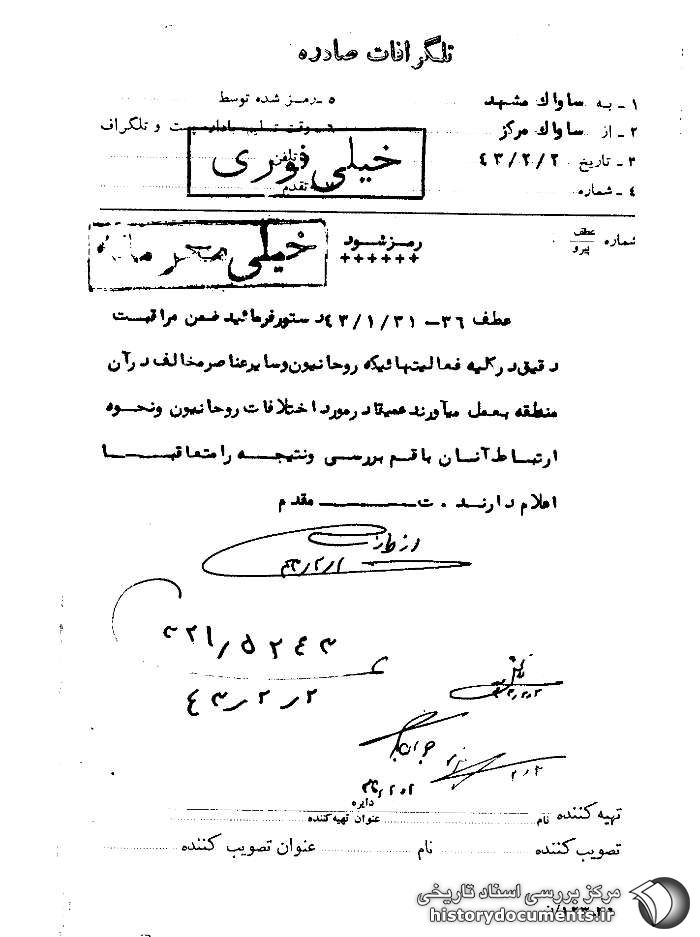 تلگرافات صادره
۱ ـ به ساواک مشهد
۵ ـ رمز شده توسط
۲ ـ از ساواک مرکز
۶ ـ وقت تسلیم باداره پست و تلگراف
۳ ـ تاریخ ۴۳/۲/۲
تلفن
۴ ـ شماره
۷ ـ تقدم
خیلی فوری
شماره عطف
پیرو
رمز شود
++++++
خیلی محرمانه
عطف ۳۶ – ۴۳/۱/۳۱ دستور فرمائید ضمن مراقبت
دقیق در کلیه فعالیتهائیکه روحانیون و سایر عناصر مخالف در آن
منطقه بعمل میآورند عمیقا در مورد اختلافات روحانیون و نحوه
ارتباط آنان با قم بررسی و نتیجه را متعاقبا
اعلام دارند . ت مقدم
۴۳/۲/۲
تهیه کننده نام
دایره
عنوان تهیه کننده
تصویب کننده نام عنوان تصویب کننده
مرکز بررسی اسناد تاریخی
historydocuments.ir